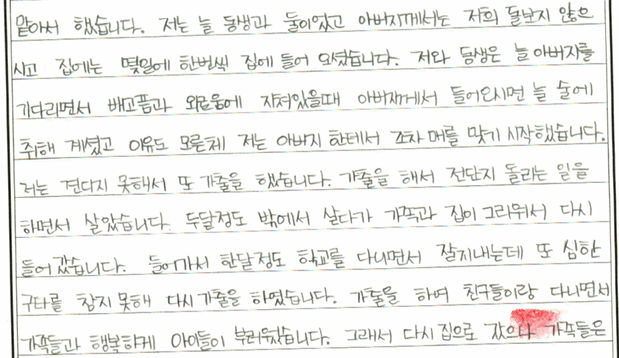 맡아서 했습니다. 저는 늘 동생과 둘이었고 아버지께서는 저희 돌보지 않으
시고 집에는 몇일에 한번씩 집에 들어 오셨습니다. 저와 동생은 늘 아버지를
기다리면서 배고픔과 외로움에 지쳐있을때 아버지께서 들어오시면 늘 술에
취해 계셨고 이유도 모른체 저는 아버지 한테서 조차 매를 맞기 시작했습니다.
저는 견디지 못해서 또 가출을 했습니다. 가출을 해서 전단지 돌리는 일을
하면서 살았습니다. 두달정도 밖에서 살다가 가족과 집이 그리워서 다시
들어 갔습니다. 들어가서 한달정도 학교를 다니면서 잘지내는데 또 심한
구타를 참지 못해 다시 가출을 하였습니다. 가출을 하며 친구들이랑 다니면서
가족들과 행복하게 아이들이 부러웠습니다. 그래서 다시 집으로 갔으나 가족들은